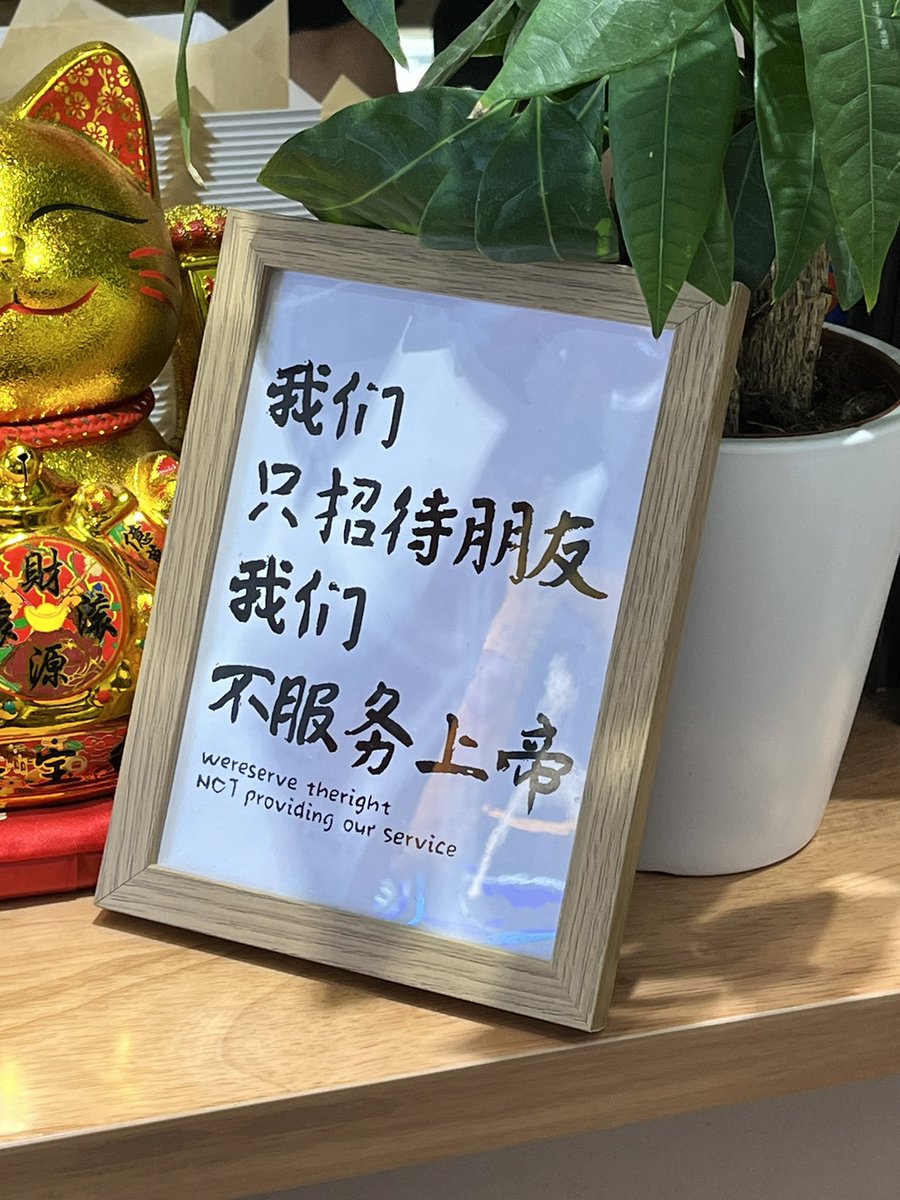 我们
只招待朋友
我们
不服务上帝
wereserve theright
NOT providing our service
財
源
滚